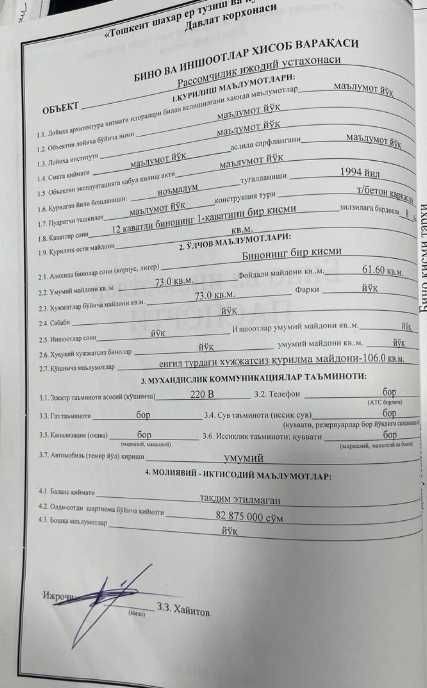 «Тошкент шаҳар ер тузиш ва
Давлат корхонаси
БИНО ВА ИНШООТЛАР ХИСОБ ВАРАҚАСИ
ОБЪЕКТ Рассомчилик ижодий устахонаси
1.ҚУРИЛИШ МАЪЛУМОТЛАРИ:
1.1. Лойиха архитектура хизмати идоралари билан келишилгани ҳақида маълумотлар маълумот йўқ
1.2. Объектни лойиҳа бўйича номи маълумот йўқ
1.3. Лойиҳа институти маълумот йўқ
1.4. Смета қиймати маълумот йўқ аслида сарфлангани маълумот йўқ
1.5 Объектни эксплуатацияга қабул қилиш акти маълумот йўқ
1.6. Қурилган йили бошланиши: номаълум тугалланиши 1994 йил
1.7. Пудратчи ташкилот маълумот йўқ конструкция тури т/бетон
1.8. Қаватлар сони 12 қаватли бинонинг 1-қаватини бир қисми
1.9. Қурилиш ости майдони кв.м.
2. ЎЛЧОВ МАЪЛУМОТЛАРИ:
2.1. Алоҳида бинолар сони (корпус, литер) Бинонинг бир қисми
2.2. Умумий майдони кв.м. 73.0 кв.м. Фойдали майдони кв.м. 61.60 кв.м.
2.3. Ҳужжатлар бўйича майдони кв.м. 73.0 кв.м. Фарқи йўқ
2.4. Сабаби йўқ
2.5. Иншоотлар сони йўқ Иншоотлар умумий майдони кв.м. йўқ
2.6. Ҳуқуқий ҳужжатсиз бинолар йўқ умумий майдони кв.м. йўқ
2.7. Қўшимча маълумотлар енгил турдаги ҳужжатсиз қурилма майдони-106.0 кв.м.
3. МУХАНДИСЛИК КОММУНИКАЦИЯЛАР ТАЪМИНОТИ:
3.1. Электр таъминоти асосий (қўшимча) 220 В 3.2. Телефон бор
(АТС борлиги)
3.3. Газ таъминоти бор 3.4. Сув таъминоти (иссиқ сув) бор
(қуввати, резервуарлар бор йўқлиги
3.5. Канализация (оқава) бор 3.6. Иссиқлик таъминоти; қуввати бор
(марказий, маҳаллий)
3.7. Автомобиль (темир йўл) кириши умумий
4. МОЛИЯВИЙ - ИҚТИСОДИЙ МАЪЛУМОТЛАР:
4.1. Баланс қиймати тақдим этилмаган
4.2. Олди-сотди шартнома бўйича қиймати 82 875 000 сўм
4.3. Бошқа маълумотлар йўқ
Ижрочи З.З. Хайитов
(имзо)
Бино қисми тархи